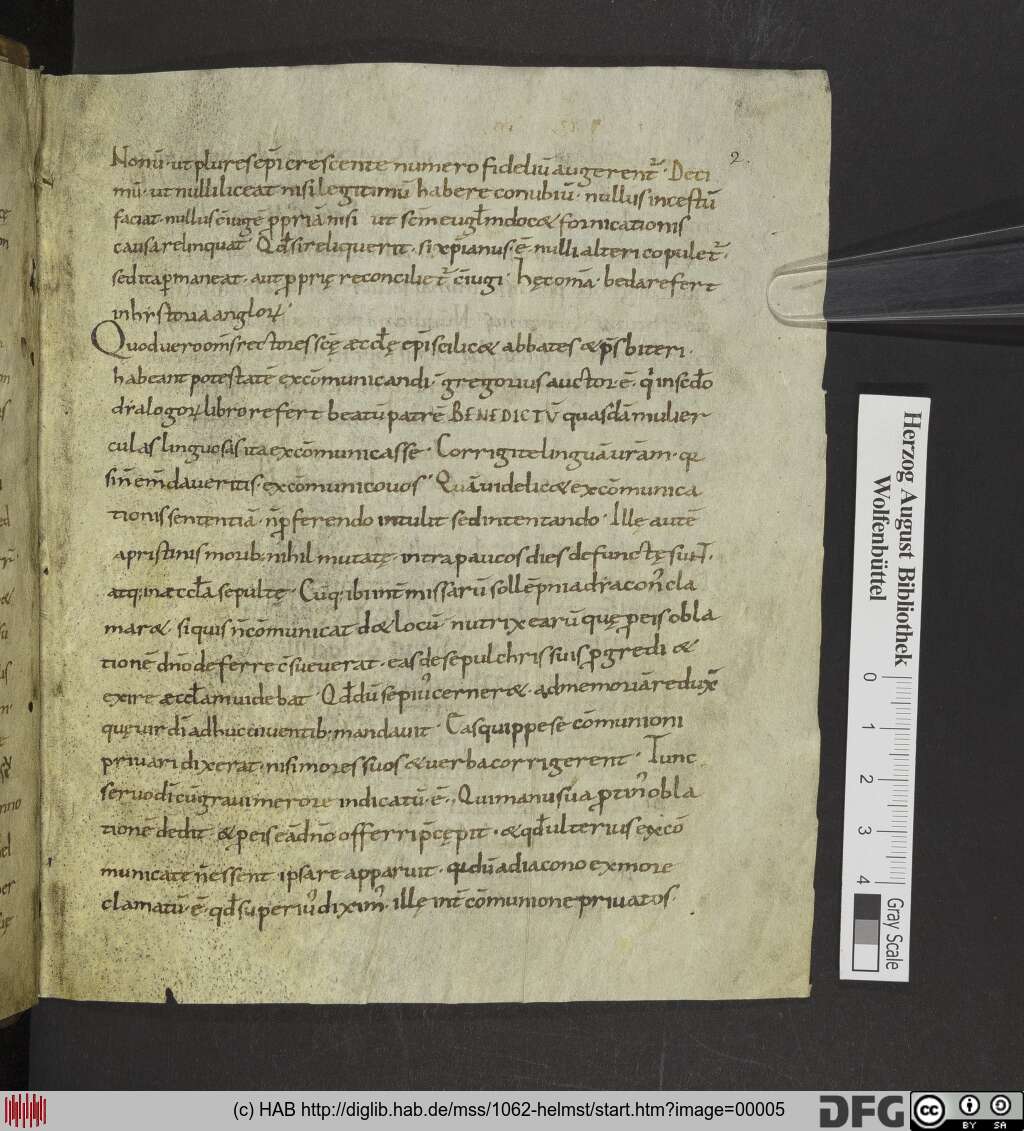 2.
Nonū· ut plures ep̄i crescente numero fideliū augerent᷒· Deci
mū· ut nulli liceat nisi legitimū habere conubiū· nullus incestū
faciat· nullus c̄iugē p̱priā nisi ut sc̄m eugl̄m docet fornicationis
causa relinquat᷒ Qd̄ si reliquerit· si xp̄ianus· ē· nulli alteri copulet᷒·
sed ita p̱maneat· aut p̱prię reconciliet᷒ c̄iugi· hęc om̄a· beda refert
in historia angloꝝ·
Quod vero om̄s rectores scę̄ æccl̄ę ep̄i scilicet abbates & p̄sbiteri·
habeant potestatē excōmunicandi· gregorius auctor· ē· qͥ in sc̄do
dialogoꝝ libro refert beatū patrē BENEDICTV̄ quasdā mulier
culas linguosas ita excōmunicasse· Corrigite linguā ur̄am· qꝛ
si n̄ em̄daveritis· excōmunico vos· Quā uidelicet excōmunica
tionis sententiā· n̄ p̱ferendo intulit sed intentando· Ille autē
a pristinis morib; nihil mutatę· intra paucos dies defunctę sunt·
atq; in æccl̄a sepultę· Cūq; ibi int̄ missarū sollēpnia diacon᷒ cla
maret· si quis n̄ cōmunicat det locū· nutrix earū quę p̱ eis obla
tionē dn̄o deferre c̄sueverat· eas de sepulchris suis p̱gredi &
exire æccl̄am uidebat· Qd̄ dū sepiu᷒ cerneret· ad memoriā reduxit
quę vir dī adhuc viventib; mandavit· Eas quippe se cōmunioni
privari dixerat· nisi mores suos & verba corrigerent· Tunc
servo dī cū gravi merore indicatū· ē·, Qui manu sua p̱tin᷒ obla
tionē dedit & p̱ eis eā dn̄o offerri p̄cępit· & qd̄ ulterius excō
municatę n̄ essent ipsa re apparuit· qi dū a diacono ex more
clamatū· ē· qd̄ superiu᷒ dixim᷒· illę int̄ cōmunione privatos·
Herzog August Bibliothek
Wolfenbüttel
0 1 2 3 4
Gray Scale
(c) HAB http://diglib.hab.de/mss/1062-helmst/start.htm?image=00005
DFG
cc BY SA